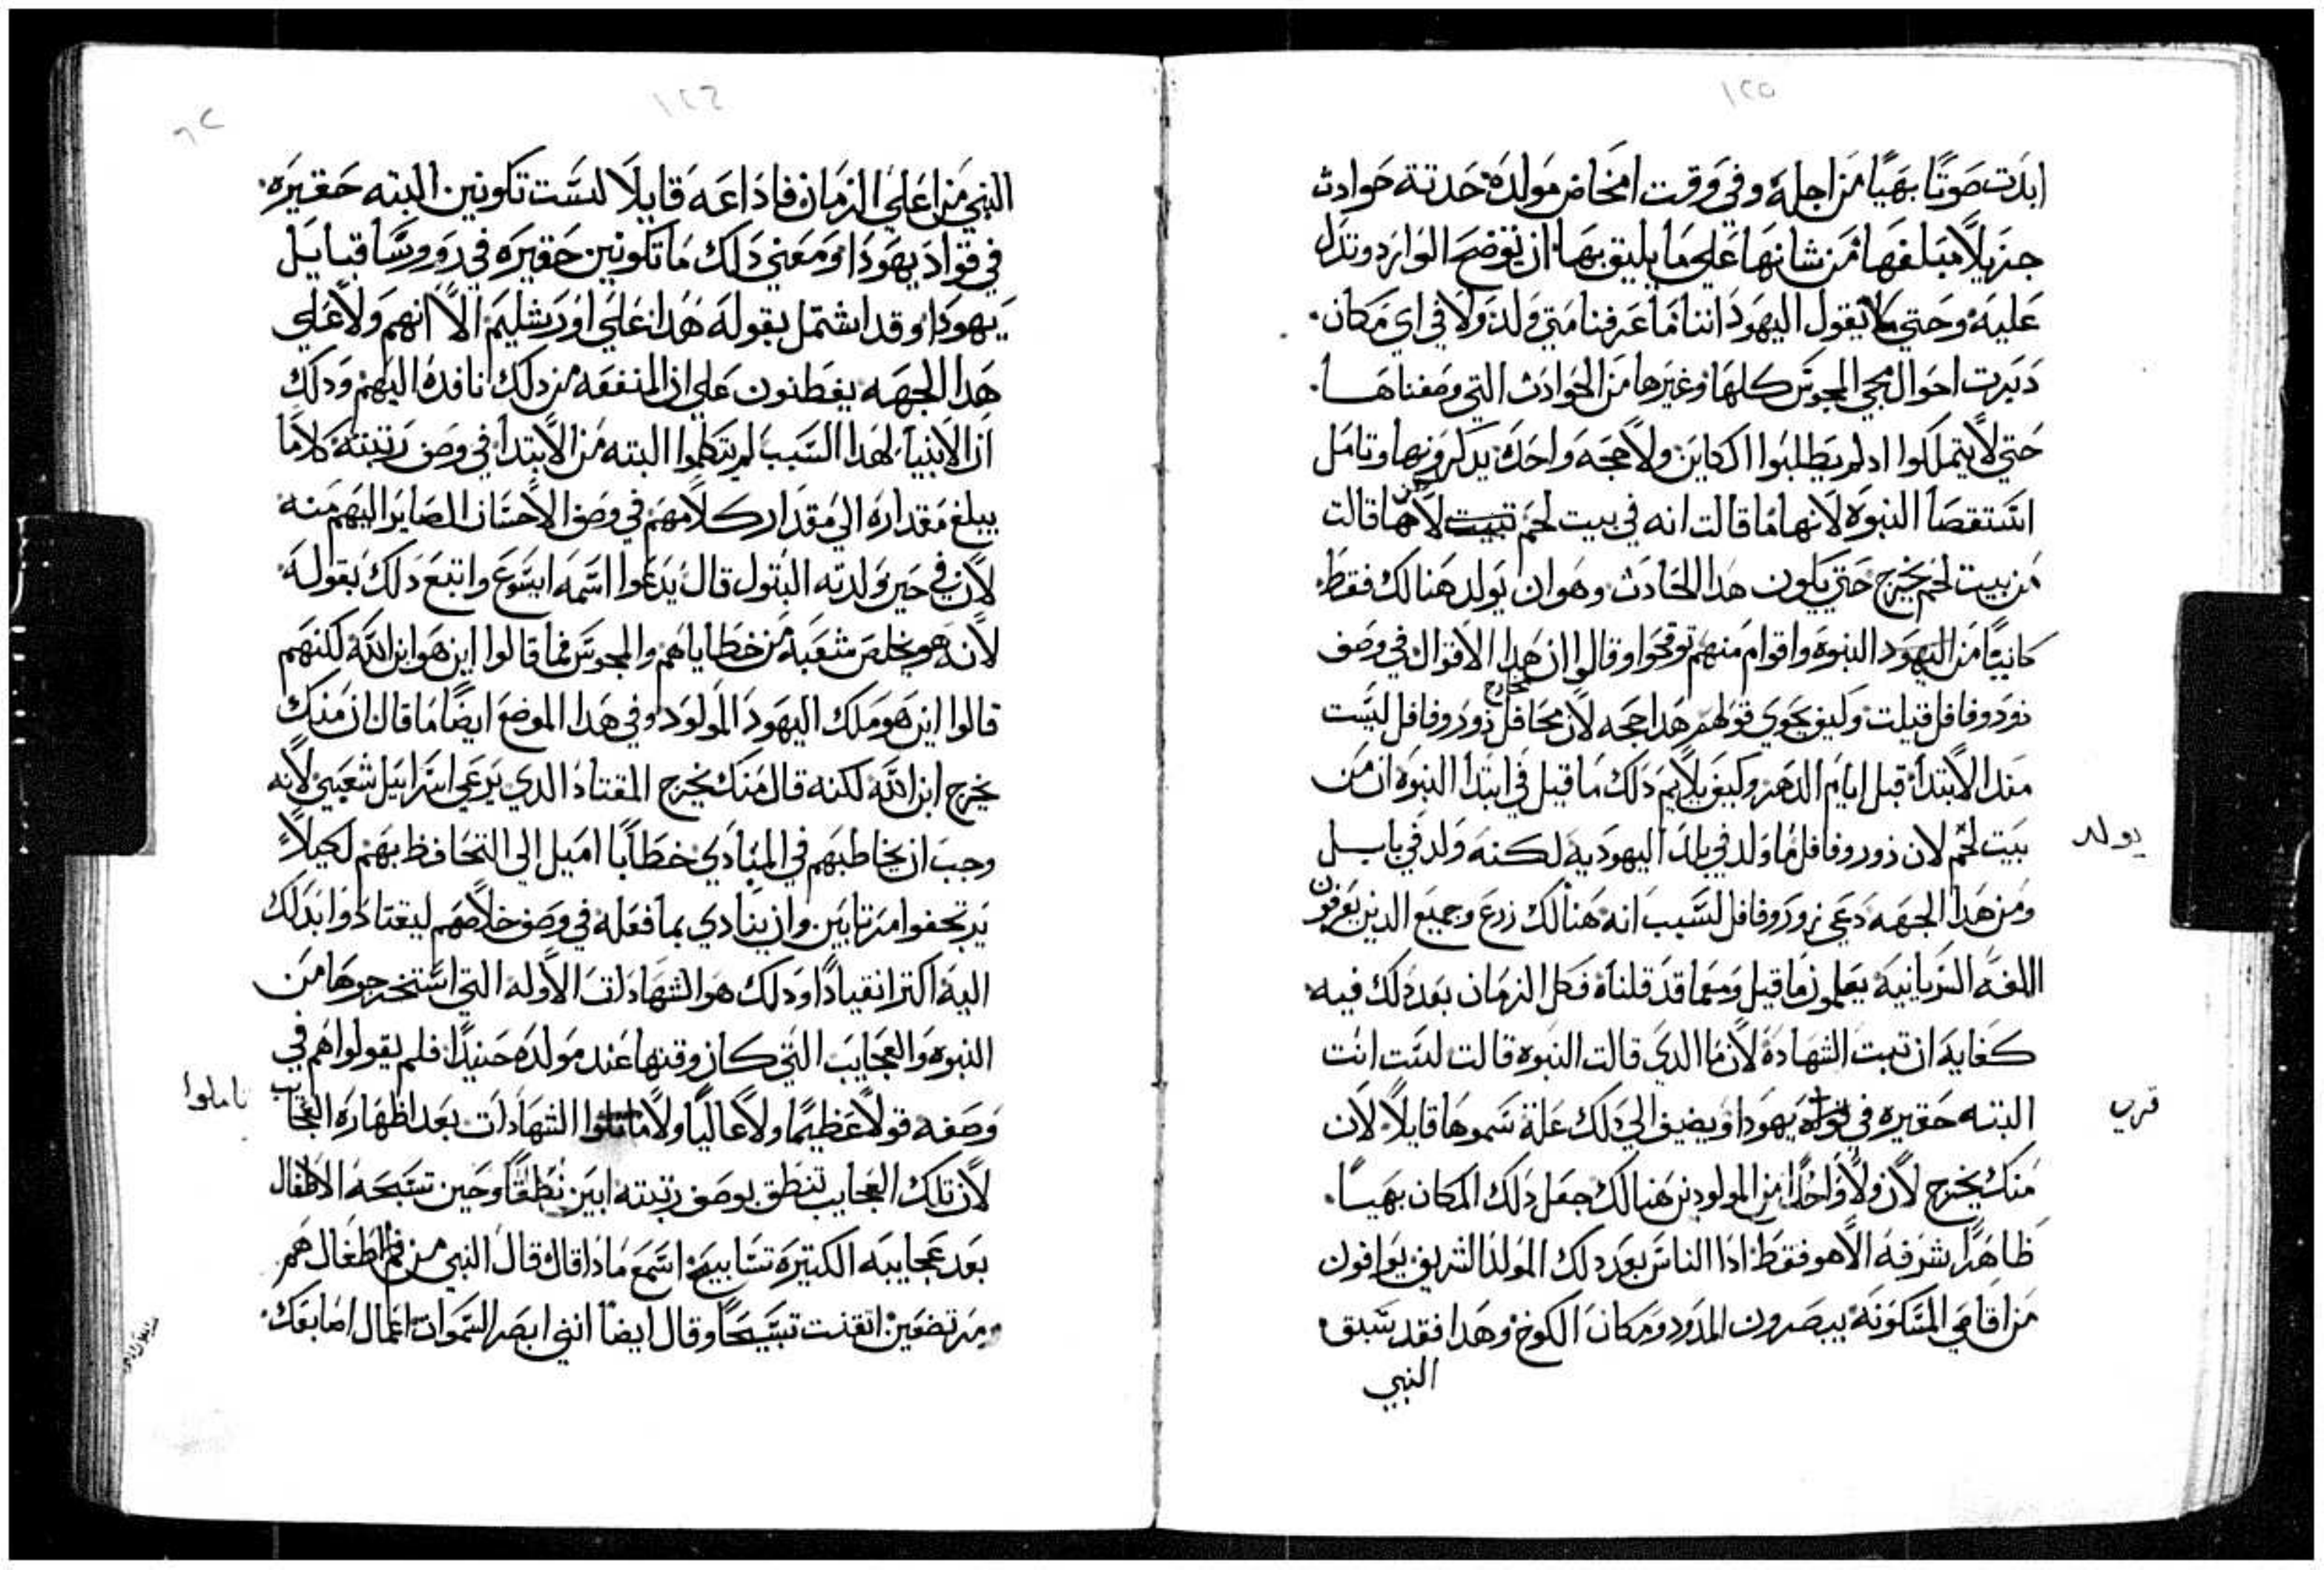 ١٢٥
ابدت صوتًا بهيًا من اجله وفي وقت امخاض مولده حدتة حوادث
جزيلاً مبلغها من شانها علي ما يليق بها ان توضح الوارد وتدل
عليه وحتي لا يقول اليهود اننا ما عرفنا متي ولد ولا في اي مكان
دبرت احوال مجي المجوس كلها وغيرها من الحوادث التي وصفناها
حتي لا يتملكوا اد لم يطلبوا الكاين ولا حجه واحده وتامل
استقصا النبوه لانها ما قالت انه في بيت لحم لانها قالت
من بيت لحم يخرج حتي يكون هدا الحادث وهو ان يولد هنالك فقط
من اليهود النبوه واقوام منهم توقحوا وقالوا ان هدا الاقوال في وصف
زوروفافل قيلت وكيف يحوي قولهم هدا حجه لان مخارج زوروفافل ليست
مند الابتدا قبل ايام الدهر وكيف يلايم دلك ما قيل في ابتدا النبوه ان من
بيت لحم لان زوروفافل ما ولد في بلد اليهوديه لكنه ولد في بابل
يولد
ومن هدا الجهه دعي زوروفافل لسبب انه هنالك زرع وجميع الدين يعرفون
اللغه السريانيه يعلمون ما قيل ومع ما قد قلناه فكل الزمان بعد دلك فيه
كفايه ان تبت الشهاده لان ما الدي قالت النبوه قالت لست انت
البته حقيره في يهودا ويضيف الي دلك علة سموها قايلاً لان
قري
منك يخرج لان ولا واحدًا من المولودين هنالك جعل دلك المكان بهيًا
ظاهرًا شرفه الا هو فقط ادا الناس بعد دلك المولد الشريف يوافون
من اقاصي المسكونه يبصرون المدود ومكان الكوخ وهدا فقد سبق
النبي
١٢٦
النبي من اعلي الزمان فاداعه قايلاً لست تكونين البته حقيره
في قواد يهودا ومعني دلك ما تكونين حقيره في روورسا قبايل
يهودا وقد اشتمل بقوله هدا علي اورشليم الا انهم ولا علي
هدا الجهه يفطنون علي ان المنفعه من دلك نافده اليهم ودلك
ان الانبيا لهدا السبب لم يتكلموا البته من الابتدا في وصف رتبته كلامًا
يبلغ مقداره الي مقدار كلامهم في وصف الاحسان الصاير اليهم منه
لان في حين ولدته البتول قال يدعوا اسمه ايسوع واتبع دلك بقوله
لانه هو يخلص شعبه من خطاياهم والمجوس فما قالوا اين هو ابن الله لكنهم
قالوا اين هو ملك اليهود المولود وفي هدا الموضع ايضًا ما قال ان منك
يخرج ابن الله لكنه قال منك يخرج المقتاد الدي يرعي اسراييل شعبي لانه
وجب ان يخاطبهم في المبادي خطابًا اميل الي التحافظ بهم لكيلاً
يرتجفوا مرتابين وان ينادي بما فعله في وصف خلاصهم ليقتادوا بدلك
اليه اكتر انقيادًا ودلك هو الشهادات الاوله التي استخرجوها من
النبوه والعجايب التي كان وقتها عند مولده حنيدًا فلم يقولوا هم في
وصفه قولاً عظيمًا ولا عاليًا ولا الشهادات بعد اظهاره العجايب
ناملوا
لان تلك العجايب تنطق بوصف رتبته ابين نطقًا وحين تسبحه الاطفال
بعد عجايبه الكتيرة تسابيح اسمع مادا قال قال النبي من فم اطفال هم
ومرتضعين اتقنت تسبيحًا وقال ايضًا انني ابصر السموات اعمال اصابعك